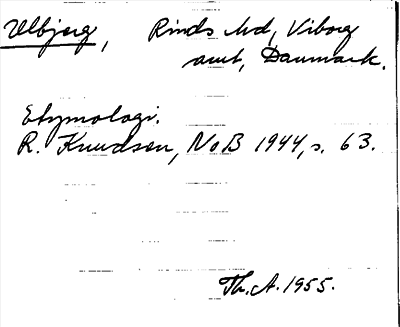 Ulbjerg, Rinds hd, Viborg
amt, Danmark.
Etymologi.
R. Knudsen, NoB 1944, s. 63.
Th. A. 1955.